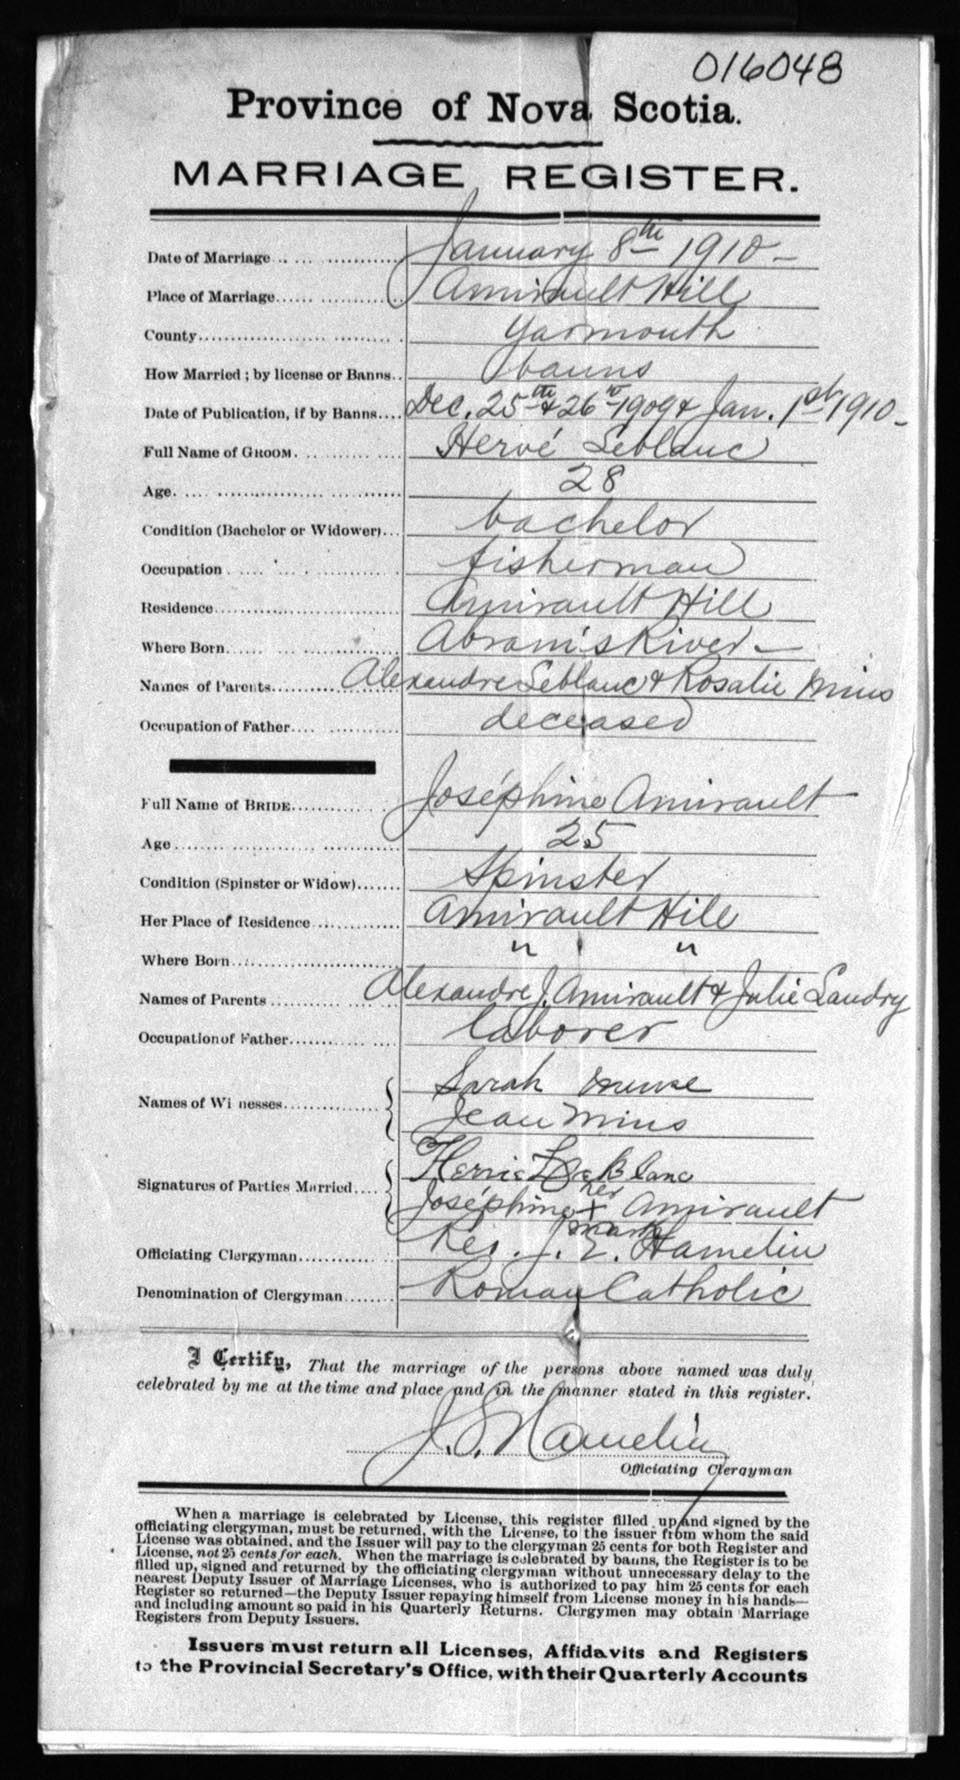 016048
Province of Nova Scotia.
MARRIAGE REGISTER.
Date of Marriage January 8th 1910 –
Place of Marriage Amirault Hill
County Yarmouth
How Married ; by license or Banns banns
Date of Publication, if by Banns Dec. 25th & 26th 1909 & Jan. 1st 1910 –
Full Name of GROOM Hervé Leblanc
Age 28
Condition (Bachelor or Widower) bachelor
Occupation fisherman
Residence Amirault Hill
Where Born Abram's River –
Names of Parents Alexandre Leblanc & Rosalie Mius
Occupation of Father deceased
Full Name of BRIDE Joséphine Amirault
Age 25
Condition (Spinster or Widow) Spinster
Her Place of Residence Amirault Hill
Where Born " "
Names of Parents Alexandre J. Amirault & Julie Landry
Occupation of Father laborer
Names of Wi nesses Sarah Muise
Jean Mius
Signatures of Parties Married Hervie LeBlanc
her
Joséphine + Amirault
mark
Officiating Clergyman Rev. J. E. Hamelin
Denomination of Clergyman Roman Catholic
I Certify, That the marriage of the persons above named was duly
celebrated by me at the time and place and in the manner stated in this register.
J. E. Hamelin
Officiating Clergyman
When a marriage is celebrated by License, this register filled up and signed by the
officiating clergyman, must be returned, with the License, to the issuer from whom the said
License was obtained, and the Issuer will pay to the clergyman 25 cents for both Register and
License, not 25 cents for each. When the marriage is celebrated by banns, the Register is to be
filled up, signed and returned by the officiating clergyman without unnecessary delay to the
nearest Deputy Issuer of Marriage Licenses, who is authorized to pay him 25 cents for each
Register so returned—the Deputy Issuer repaying himself from License money in his hands—
and including amount so paid in his Quarterly Returns. Clergymen may obtain Marriage
Registers from Deputy Issuers.
Issuers must return all Licenses, Affidavits and Registers
to the Provincial Secretary's Office, with their Quarterly Accounts